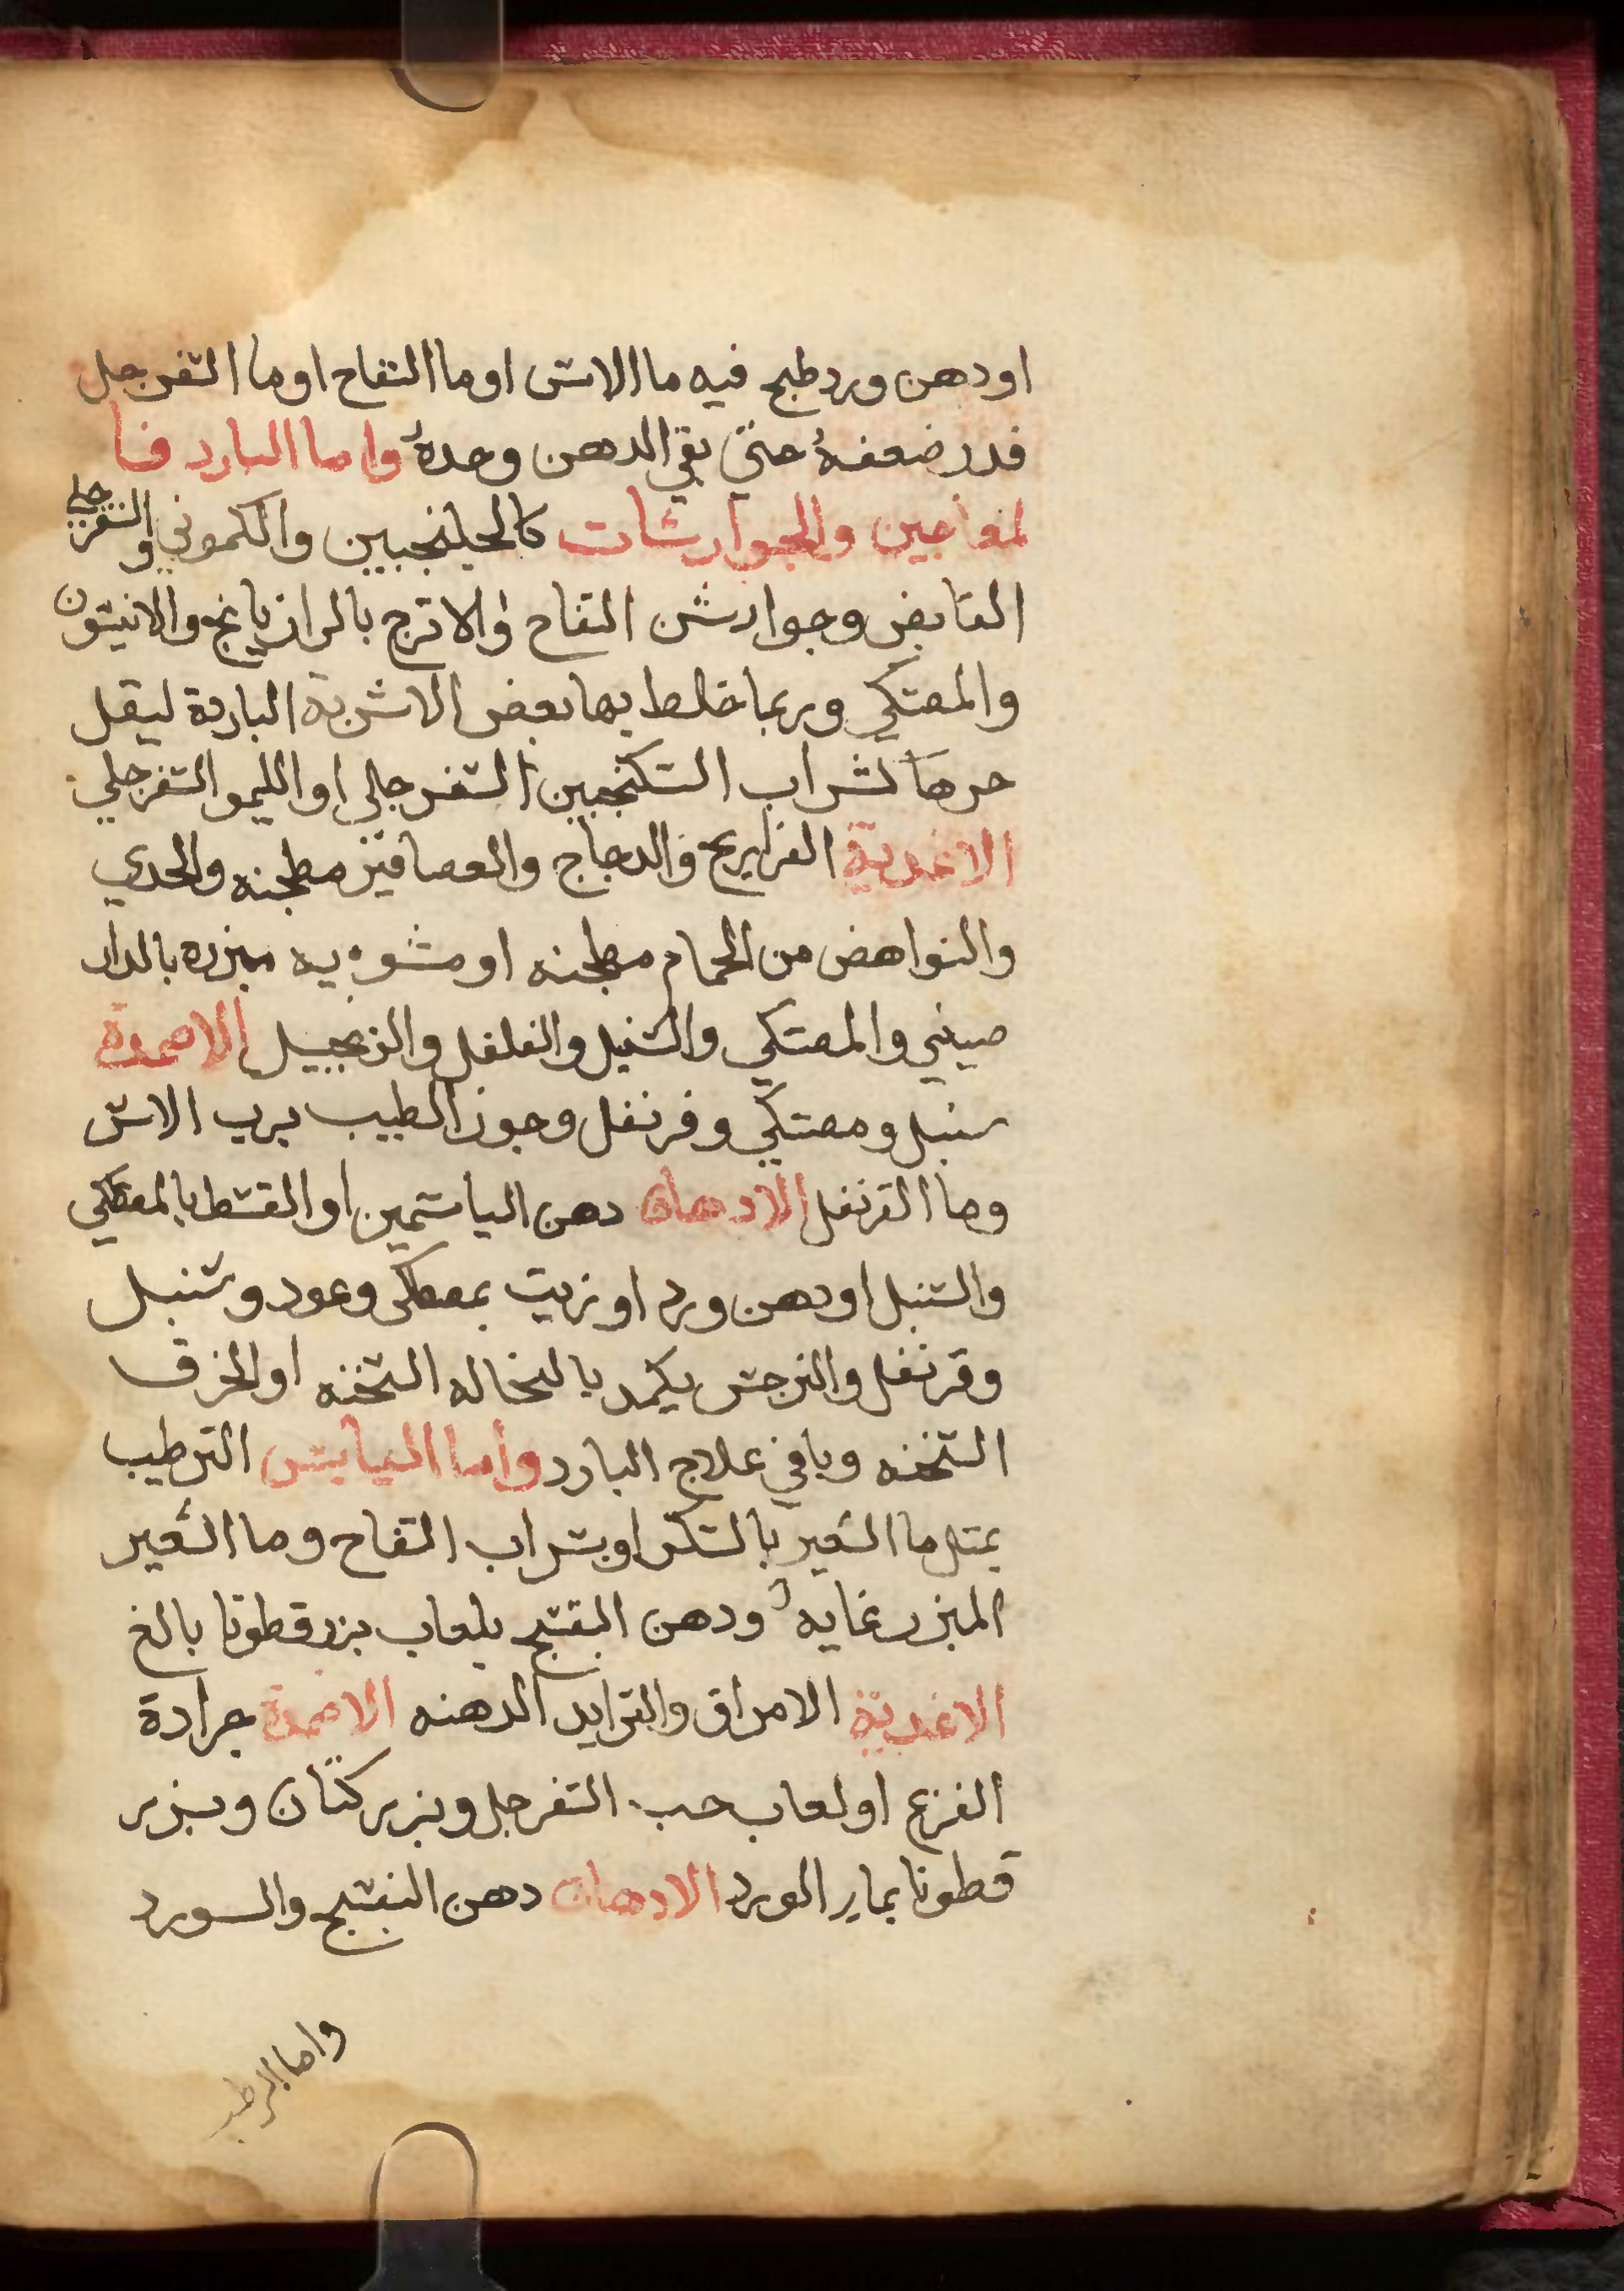 او دهن ورد طبخ فيه ما الاس او ما التفاح او ما السفرجل
قدر ضعفهُ حتى بقي الدهن وحدهُ واما البارد فا
لمعاجين والجوارشات كالجلنجبين والكموني والسفرجلي
القابض وجوارش التفاح والاترج بالرازيانج والانيسون
والمصتكي وربما خلط بها بعض الاشربة الباردة ليقل
حرها كشراب السكنجبين السفرجلي او الليمو السفرجلي
الاغدية الفراريج والدجاج والعصافير مطجنه والجدي
والنواهض من الحمام مطجنه او مشويه مبزره بالدار
صيني والمصتكي والسنبل والفلفل والزنجبيل الاضمدة
سنبل ومصتكي وقرنفل وجوز الطيب برب الاس
وما القرنفل الادهان دهن الياسمين او القسط بالمصطكي
والسنبل او دهن ورد او زيت بمصطكى وعود وسنبل
وقرنفل والنرجس يكمد بالنخاله السخنه او الخرق
السخنه وباقي علاج البارد وأما اليابس الترطيب
بمثل ما الشعير بالسكر او بشراب التفاح وما الشعير
المبزر غايه ودهن البنفسج بلعاب بزرقطونا بالغ
الاغدية الامراق والترايد الدهنه الاضمدة جرادة
القرع او لعاب حب السفرجل وبزر كتان وبزر
قطونا بماء الورد الادهان دهن البنفسج والورد
واما الرطب